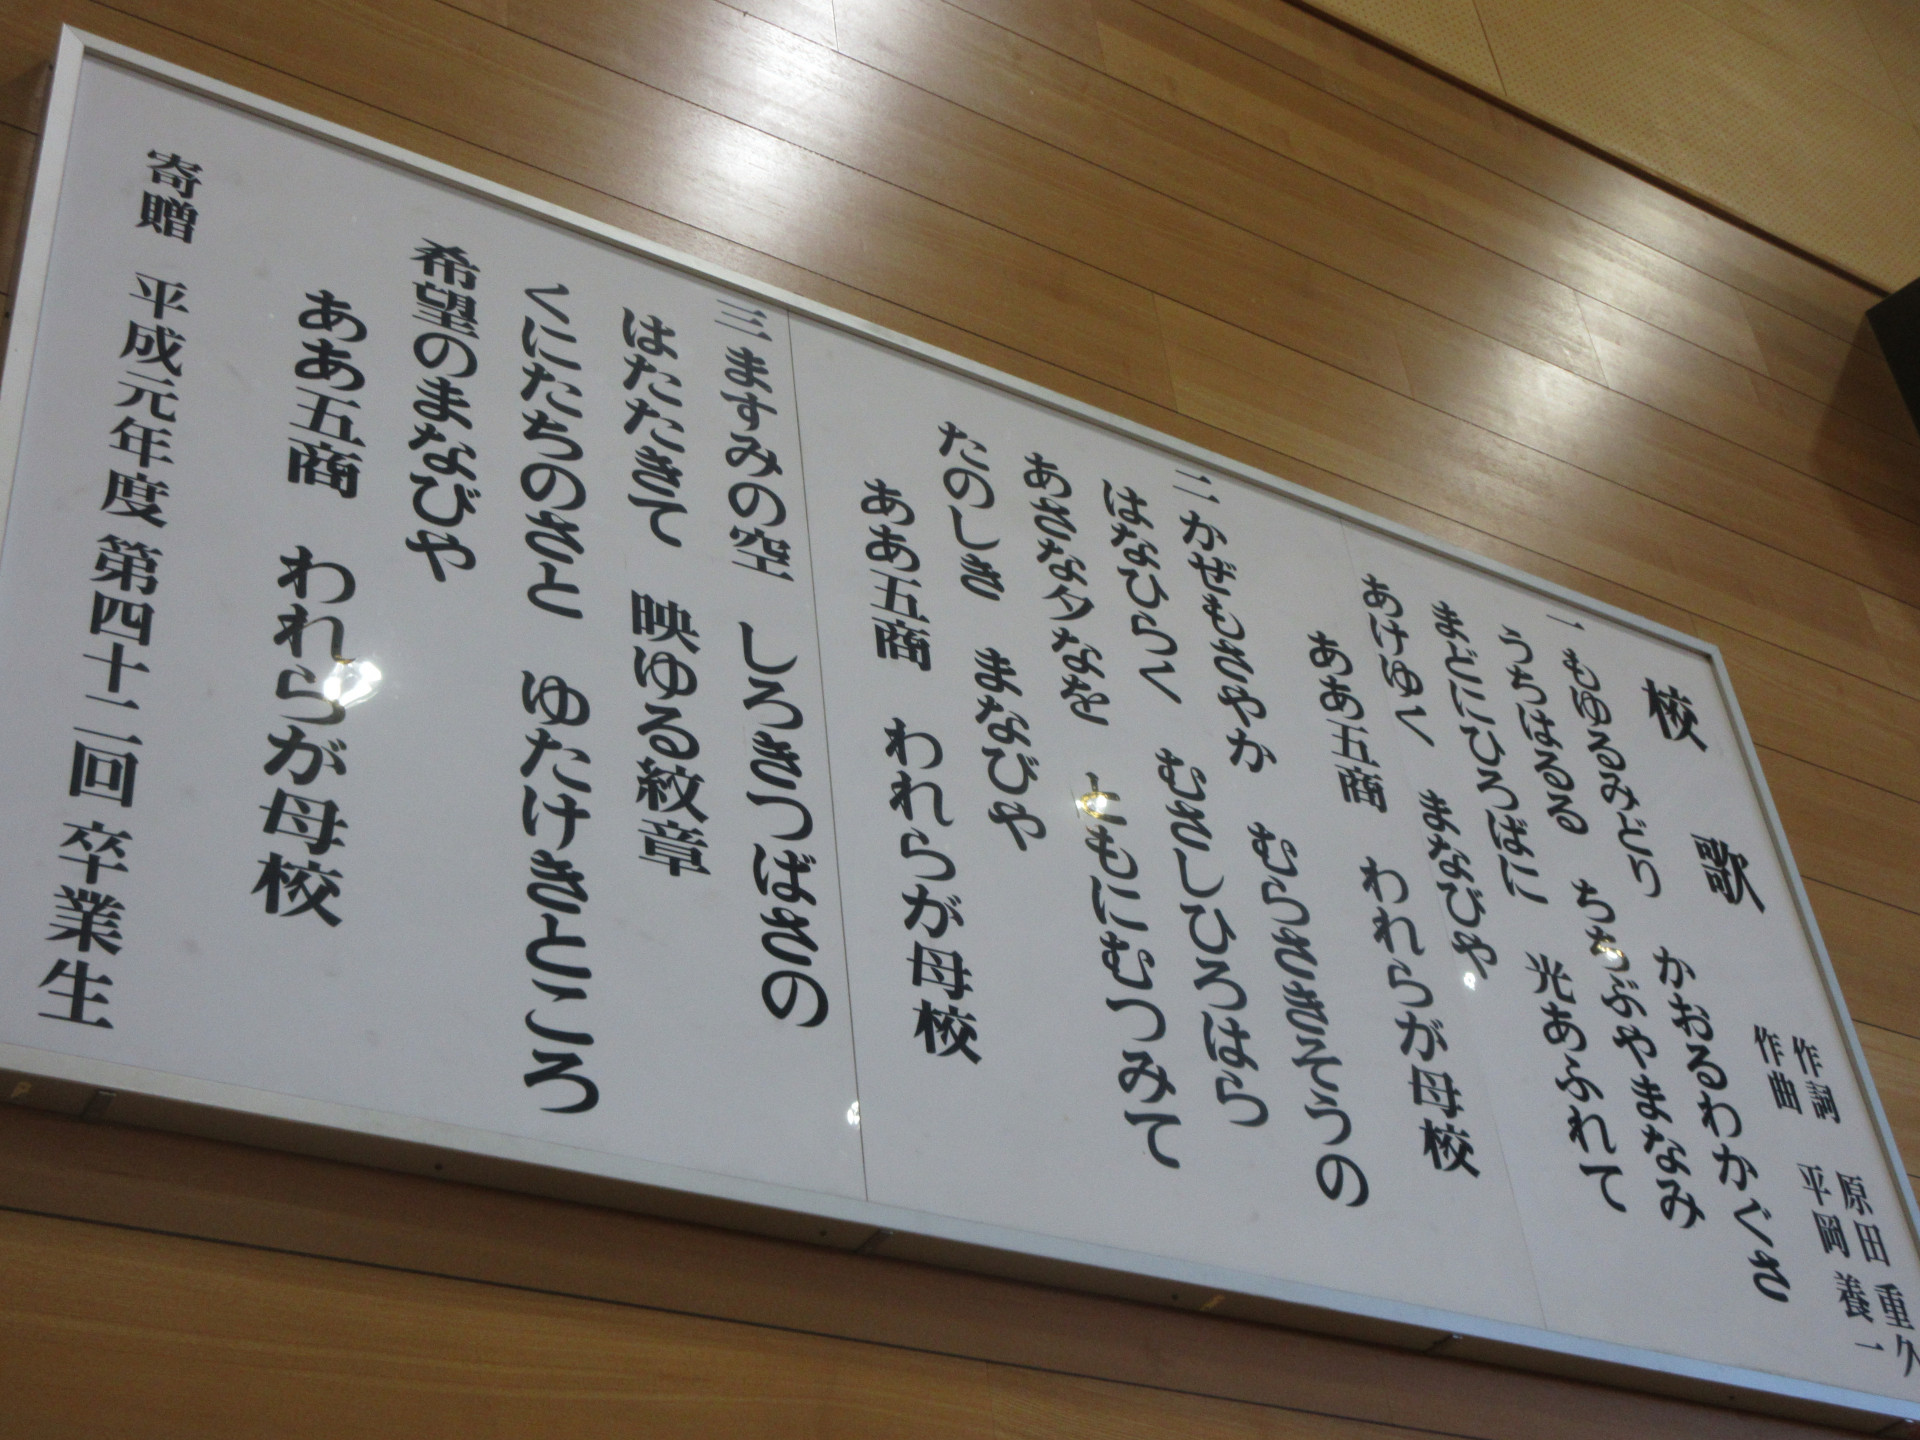 校歌
作詞 原田重久
作曲 平岡養一
一 もゆるみどり かおるわかぐさ
うちはるる ちちぶやまなみ
まどにひろばに 光あふれて
あけゆく まなびや
ああ五商 われらが母校
二 かぜもさやか むらさきそうの
はなひらく むさしひろはら
あさな夕なを ともにむつみて
たのしき まなびや
ああ五商 われらが母校
三 ますみの空 しろきつばさの
はたたきて 映ゆる紋章
くにたちのさと ゆたけきところ
希望のまなびや
ああ五商 われらが母校
寄贈 平成元年度 第四十二回 卒業生